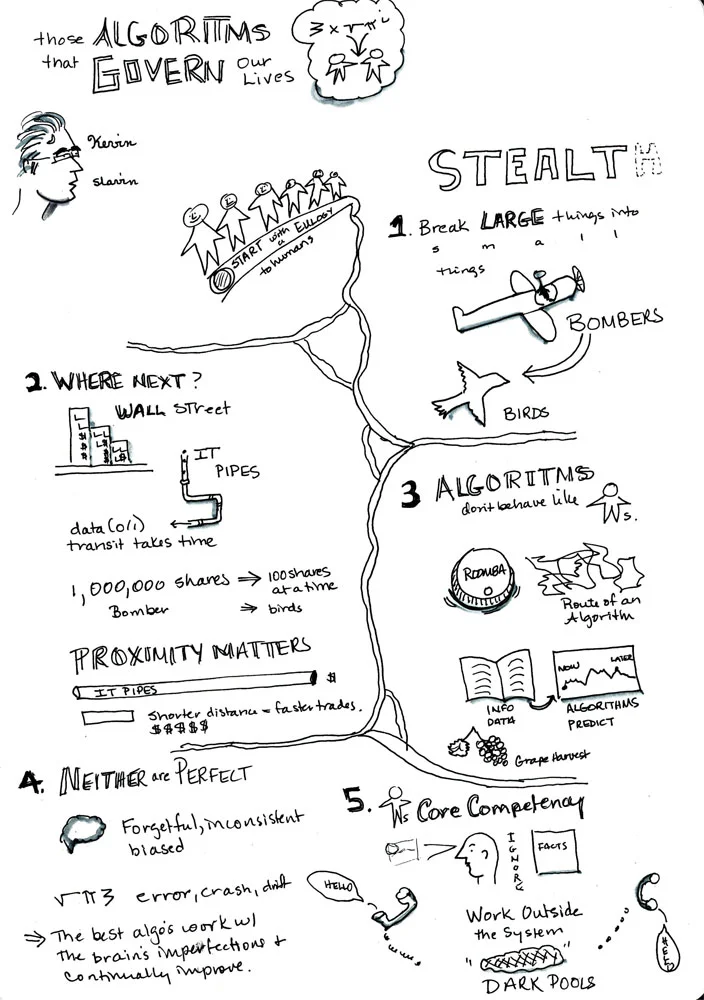 those ALGORITMS
that GOVERN our
LIVES
3 x √ π i
Kevin
Slavin
START with a EULOGY
to humans
STEALTH
1. Break LARGE things into
s m a l l
things
BOMBERS
BIRDS
2. WHERE NEXT?
WALL STreet
IT
PIPES
data (0/1)
transit takes time
1,000,000 shares ⇒ 100 shares
at a time
Bomber ⇒ birds
PROXIMITY MATTERS
IT PIPES $
Shorter distance = faster trades.
$$$$$
3 ALGORITMS
don't behave like
s.
ROOMBA
Route of an
Algorithm
NOW LATER
INFO
DATA
ALGORITHMS
PREDICT
Grape Harvest
4. NEITHER are PERFECT
Forgetful, inconsistent
biased
√ π 3 error, crash, drift
⇒ The best algo's work w/
the brain's imperfections +
continually improve.
5. s Core Competency
IGNORE
FACTS
HELLO
Work Outside
the System
" "
DARK POOLS
HELP